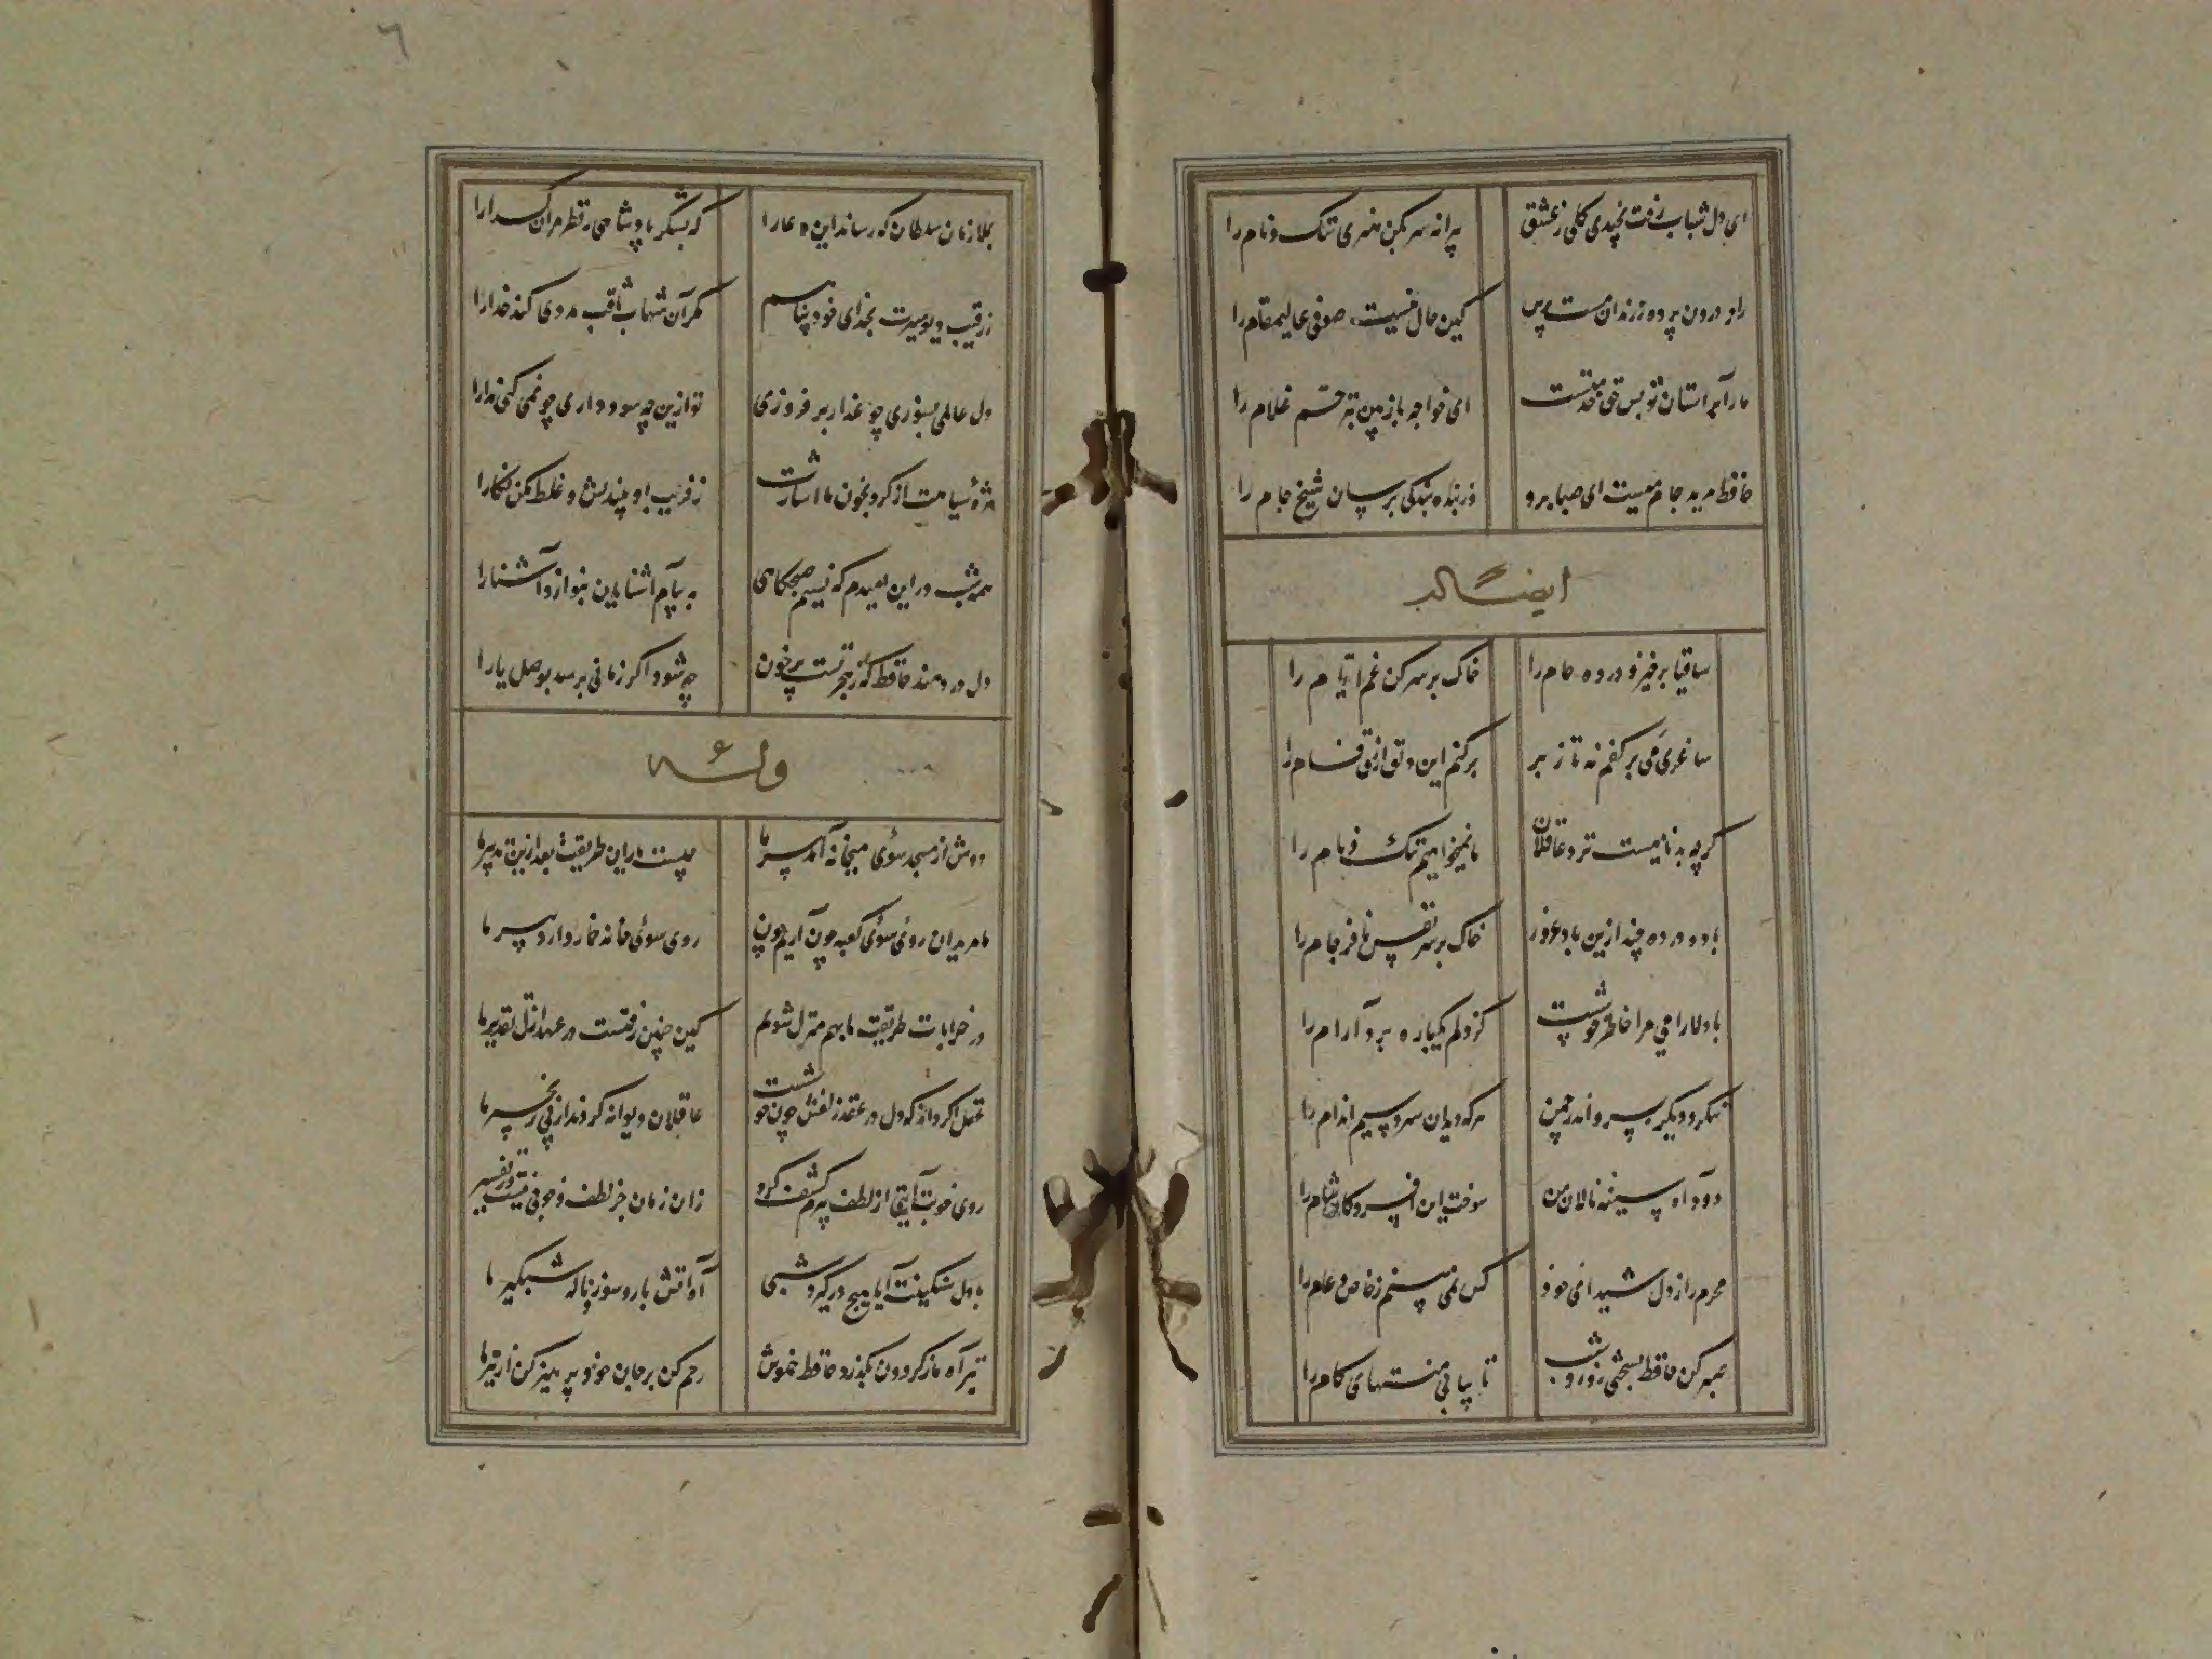 ای دل شباب رفت نچیدی گلی ز عشق
پیرانه سر مکن هنری ننگ و نام را
راز درون پرده ز رندان مست پرس
کین حال نیست صوفی عالیمقام را
ما را بر آستان تو بس حق خدمتست
ای خواجه بازبین بترحم غلام را
حافظ مرید جام میست ای صبا برو
وز بنده بندگی برسان شیخ جام را
ایضاً له
ساقیا برخیز و درده جام را
خاک بر سر کن غم ایام را
ساغری می بر کفم نه تا ز بر
برکنم این دلق ازرق فام را
گرچه بدنامیست نزد عاقلان
ما نمیخواهیم ننگ و نام را
باده درده چند ازین باد غرور
خاک بر سر نفس نافرجام را
با دلارامی مرا خاطر خوشست
کز دلم یکباره برد آرام را
ننگرد دیگر بسرو اندر چمن
هرکه دید آن سرو سیم اندام را
دود آه سینه نالان من
سوخت این افسردگان خام را
محرم راز دل شیدای خود
کس نمی بینم ز خاص و عام را
صبر کن حافظ بسختی روز و شب
تا بیابی منتهای کام را
بملازمان سلطان که رساند این دعا را
که بشکر پادشاهی ز نظر مران گدا را
ز رقیب دیوسیرت بخدای خود پناهم
مگر آن شهاب ثاقب مددی کند خدا را
دل عالمی بسوزی چو عذار بر فروزی
تو ازین چه سود داری چو نمی کنی مدارا
مژۀ سیاهت ار کرد بخون ما اشارت
ز فریب او بیندیش و غلط مکن نگارا
همه شب در این امیدم که نسیم صبحگاهی
به پیام آشنایان بنوازد آشنا را
دل دردمند حافظ که ز هجر تست پر خون
چه شود اگر زمانی برسد بوصل یارا
وله
دوش از مسجد سوی میخانه آمد پیر ما
چیست یاران طریقت بعد ازین تدبیر ما
ما مریدان روی سوی کعبه چون آریم چون
روی سوی خانه خمار دارد پیر ما
در خرابات طریقت ما بهم منزل شویم
کین چنین رفتست در عهد ازل تقدیر ما
عقل اگر داند که دل در عقد زلفش چون خوشست
عاقلان دیوانه گردند از پی زنجیر ما
روی خوبت آیتی از لطف بر ما کشف کرد
زان زمان جز لطف و خوبی نیست در تفسیر ما
با دل سنگینت آیا هیچ درگیرد شبی
آه آتش بار و سوز ناله شبگیر ما
تیر آه ما ز گردون بگذرد حافظ خموش
رحم کن بر جان خود پرهیز کن از تیر ما